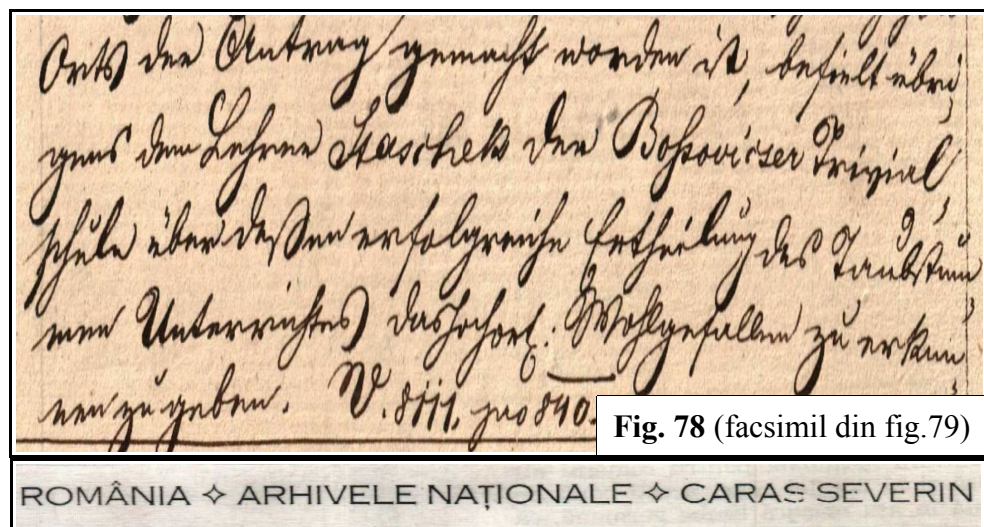 Orts der Antrag gemacht worden ist, befielt übri
gens dem Lehrer Staschek der Bosovicser Trivial
schule über deßen erfolgreiche Ertheilung des Taubstum
men Unterrichtes das hochort. Wohlgefallen zu erken
nen zu geben. V. 8111. pro 840.
Fig. 78 (facsimil din fig.79)
ROMÂNIA ✧ ARHIVELE NAȚIONALE ✧ CARAS SEVERIN